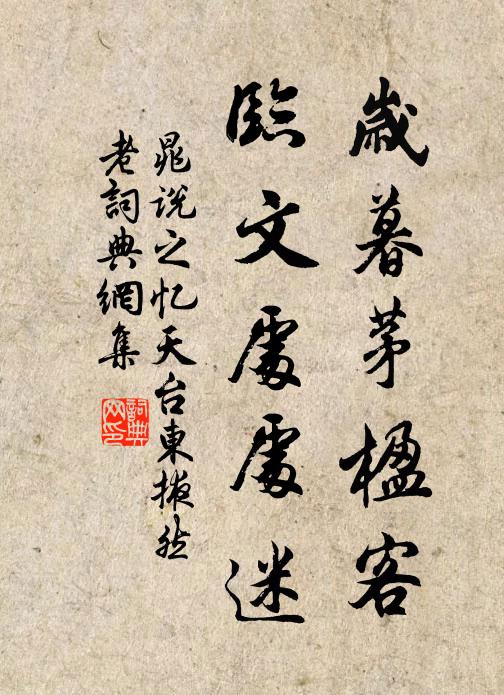 歲暮茅楹客
臨文處處迷
晁說之忆天台東掖然
老詞典網集
詞典网印